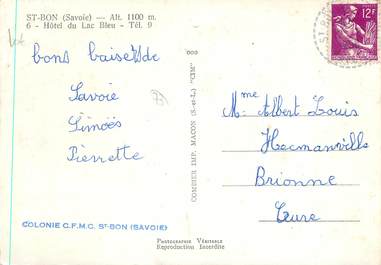 ST-BON (Savoie) — Alt. 1100 m.
6 - Hôtel du Lac Bleu - Tél. 9
bons baisers de
Savoie
Simoës
Pierrette
COLONIE C.F.M.C. St-BON (SAVOIE)
COMBIER IMP. MACON (S.-et-L.) "CIM"
Photographie Véritable
Reproduction Interdite
12F
ST-BON
Mme Albert Louis
Hecmanville
Brionne
Eure